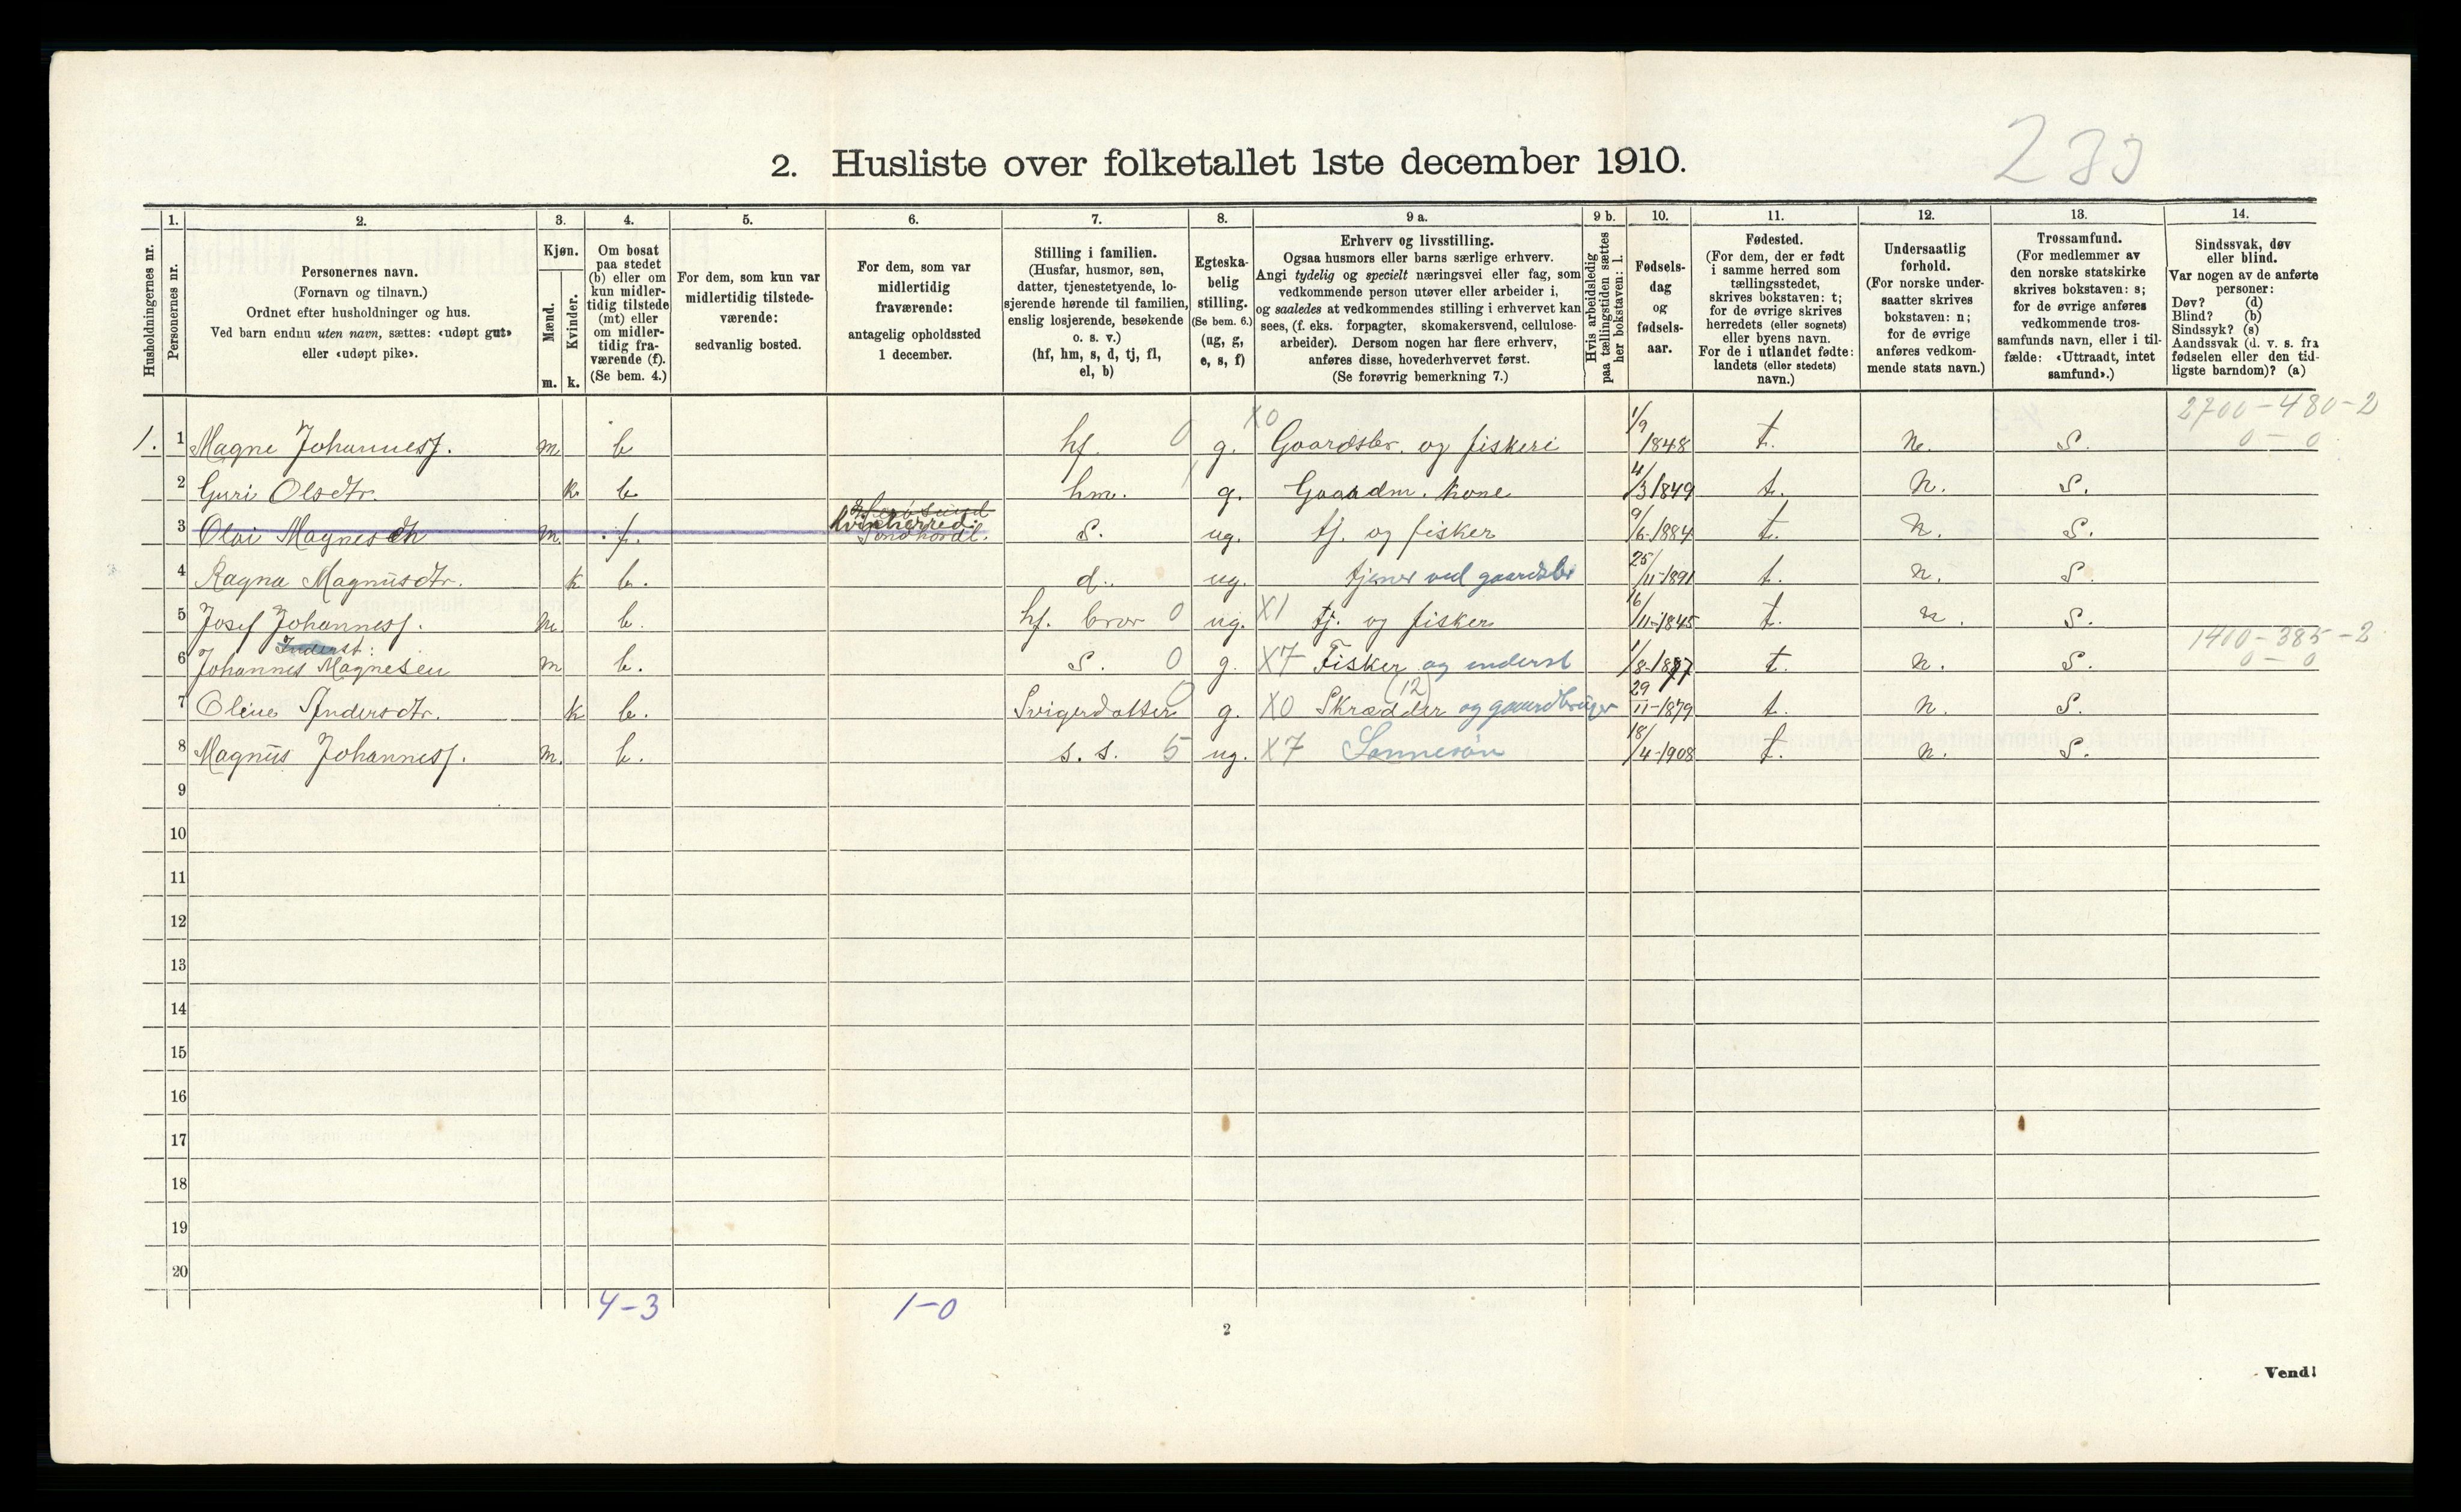 233
2. Husliste over folketallet 1ste december 1910.
Husholdningernes nr.
1. Personernes nr.
2. Personernes navn. (Fornavn og tilnavn.) Ordnet efter husholdninger og hus. Ved barn endnu uten navn, sættes: «udøpt gut» eller «udøpt pike».
3. Kjøn. Mænd. m. Kvinder. k.
4. Om bosat paa stedet (b) eller om kun midlertidig tilstede (mt) eller om midlertidig fraværende (f). (Se bem. 4.)
5. For dem, som kun var midlertidig tilstedeværende: sedvanlig bosted.
6. For dem, som var midlertidig fraværende: antagelig opholdssted 1 december.
7. Stilling i familien. (Husfar, husmor, søn, datter, tjenestetyende, losjerende hørende til familien, enslig losjerende, besøkende o. s. v.) (hf, hm, s, d, tj, fl, el, b)
8. Egteskabelig stilling. (Se bem. 6.) (ug, g, e, s, f)
9 a. Erhverv og livsstilling. Ogsaa husmors eller barns særlige erhverv. Angi tydelig og specielt næringsvei eller fag, som vedkommende person utøver eller arbeider i, og saaledes at vedkommendes stilling i erhvervet kan sees, (f. eks. forpagter, skomakersvend, cellulosearbeider). Dersom nogen har flere erhverv, anføres disse, hovederhvervet først. (Se forøvrig bemerkning 7.)
9 b. Hvis arbeidsledig paa tællingstiden sættes her bokstaven: l.
10. Fødselsdag og fødselsaar.
11. Fødested. (For dem, der er født i samme herred som tællingsstedet, skrives bokstaven: t; for de øvrige skrives herredets (eller sognets) eller byens navn. For de i utlandet fødte: landets (eller stedets) navn.)
12. Undersaatlig forhold. (For norske undersaatter skrives bokstaven: n; for de øvrige anføres vedkommende stats navn.)
13. Trossamfund. (For medlemmer av den norske statskirke skrives bokstaven: s; for de øvrige anføres vedkommende trossamfunds navn, eller i tilfælde: «Uttraadt, intet samfund».)
14. Sindssvak, døv eller blind. Var nogen av de anførte personer: Døv? (d) Blind? (b) Sindssyk? (s) Aandssvak (d. v. s. fra fødselen eller den tidligste barndom)? (a)
1. 1 Magne Johannesf. m. b hf. 0 g. X0 Gaardsbr. og fiskeri 1/9 1848 t. n. S. 2700-480-2 0-0
2 Guri Olsdtr. k. b. hm. 1 g. Gaardm. kone 4/3 1849 t. n. S.
3 Olai Magnesen m. f. Kvinherred Søndhordl. S. ug. tj. og fisker 9/6-1884 t. n. S.
4 Ragna Magnusdtr. k b. d. ug. tjener ved gaardsbr 25/11-1891 t. n. S.
5 Josef Johannesf. m. b. hf. bror 0 ug. X1 tj. og fisker 16/11-1845 t. n. S.
Inderst:
6 Johannes Magnesen m b. S. 0 g. X7 Fisker og inderst 1/8-1877 t. n. S. 1400-385-2 0-0
7 Oline Andersdtr. k b. Svigerdatter 0 g. X0 Skrædder (12) og gaardbruger 29/11-1879 t. n. S.
8 Magnus Johannesf. m. b. s. s. 5 ug. X7 Sønnesøn 18/4-1908 t. n. S.
9
10
11
12
13
14
15
16
17
18
19
20
4-3 1-0
2
Vend!